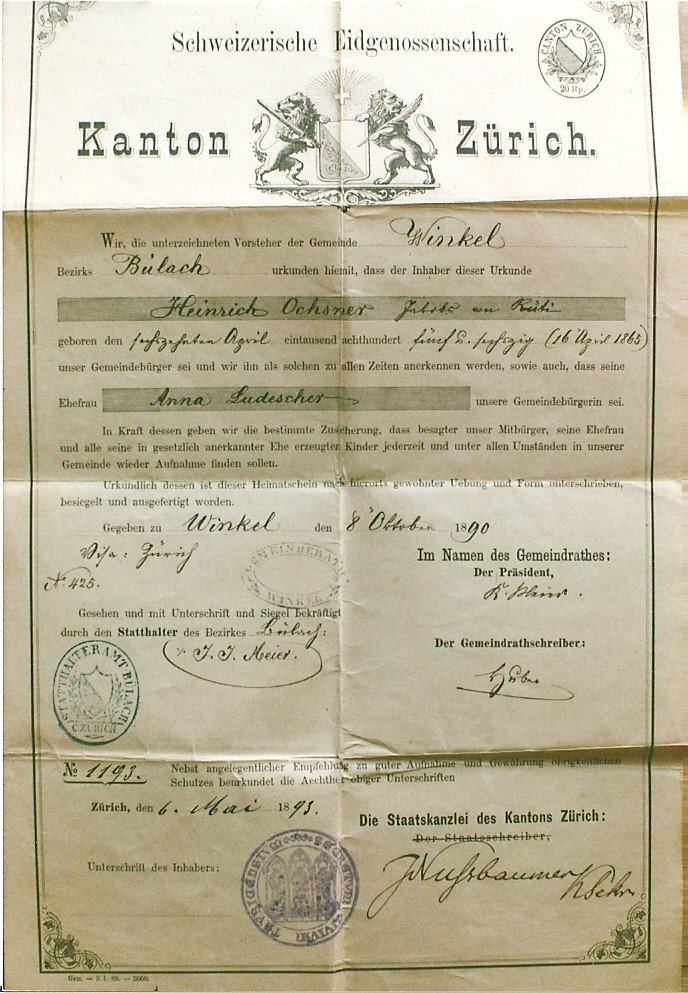 Schweizerische Eidgenossenschaft.
CANTON ZÜRICH
20 Rp.
Kanton Zürich.
Wir, die unterzeichneten Vorsteher der Gemeinde Winkel
Bezirks Bülach urkunden hiemit, dass der Inhaber dieser Urkunde
Heinrich Ochsner Jakobs von Rüti
geboren den sechszehnten April eintausend achthundert fünf u. sechszig (16 April 1865)
unser Gemeindebürger sei und wir ihn als solchen zu allen Zeiten anerkennen werden, sowie auch, dass seine
Ehefrau Anna Ludescher unsere Gemeindebürgerin sei.
In Kraft dessen geben wir die bestimmte Zusicherung, dass besagter unser Mitbürger, seine Ehefrau
und alle seine in gesetzlich anerkannter Ehe erzeugten Kinder jederzeit und unter allen Umständen in unserer
Gemeinde wieder Aufnahme finden sollen.
Urkundlich dessen ist dieser Heimatschein nach hierorts gewohnter Uebung und Form unterschrieben,
besiegelt und ausgefertigt worden.
Gegeben zu Winkel den 8 Oktober 1890
Visa: Zürich
N. 425.
GEMEINDERATH
WINKEL
Im Namen des Gemeindrathes:
Der Präsident,
K. Meier.
Gesehen und mit Unterschrift und Siegel bekräftigt
durch den Statthalter des Bezirkes Bülach:
J. J. Meier.
Der Gemeindrathschreiber:
Huber
STATTHALTERAMT BÜLACH
C. ZÜRICH
No 1193. Nebst angelegentlicher Empfehlung zu guter Aufnahme und Gewährung obrigkeitlichen
Schutzes beurkundet die Aechtheit obiger Unterschriften
Zürich, den 6. Mai 1893.
Die Staatskanzlei des Kantons Zürich:
Der Staatsschreiber,
J Nussbaumer
Unterschrift des Inhabers:
Gem. — 3. I. 89. — 3000.